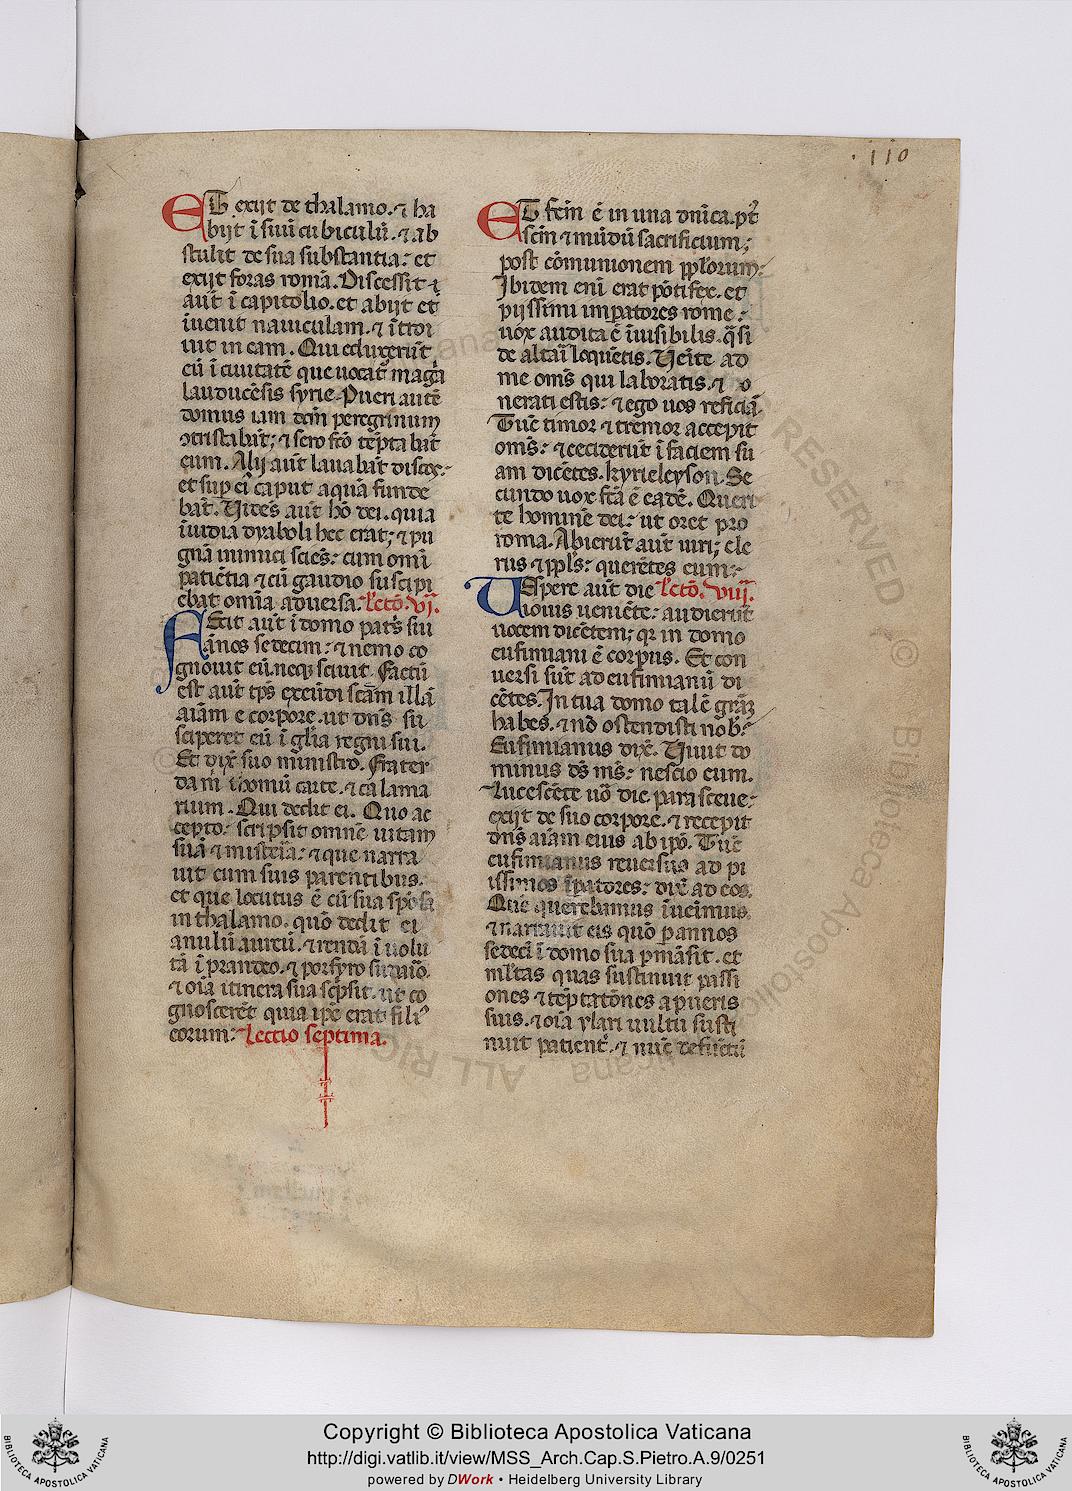 110
ET exijt de thalamo. ⁊ ha
bijt ī suū cubiculū. ⁊ ab
stulit de sua substantia: et
exijt foras romā. Discessit
aut̄ ī capitolio. et abijt et
īuenit nauiculam. ⁊ ītroi
uit in eam. Qui eduxerūt
cū ī ciuitatē que uocat̄ magā
lauducēsis syrie. Pueri autē
domus iam dcm̄ peregrinum
ꝯtristabāt; ⁊ sero fc̄o tēptabāt
eum. Alij aut̄ lauabāt discos:
et suꝑ eī caput aquā funde
bāt. Uidēs aut̄ hō dei. quia
īuidia dyaboli hec erat; ⁊ pu
gnā inimici sciēs: cum omī
patiētia ⁊ cū gaudio suscipi
ebat omīa aduersa. Lectō. vi.
FEcit aut̄ ī domo patris sui
ānos sedecim: ⁊ nemo co
gnouit eū. neqꝫ sciuit. Factū
est aut̄ tp̄s exeūdi scām illā
aīam e corpore. ut dn̄s su
sciperet eū ī glīa regni sui.
Et dix̄ suo ministro. Frater
da m̄ thomū carte. ⁊ calama
rium. Qui dedit ei. Quo ac
cepto: scripsit omnē uitam
suā ⁊ misteīa: ⁊ que narra
uit cum suis parentibus.
et que locutus ē cū sua spōsa
in thalamo. quō dedit ei
anulū aureū. ⁊ rendā ī uolu
tā ī prandeo. ⁊ porfyro sudaīo.
⁊ oīa itinera sua scp̄sit. ut co
gnoscerēt quia ip̄e erat filiꝰ
eorum: Lectio septima.
ET fcm̄ ē in una dnīca. pꝰt
scm̄ ⁊ mūdū sacrificium;
post cōmunionem pplōrum:
Ibidem enī erat pōtifex. et
piissimi imꝑatores rome:
uox audita ē īuisibilis. q̄si
de altaī loquētis. Uenite ad
me oms̄ qui laboratis. ⁊ o
nerati estis: ⁊ ego uos reficiā.
Tūc timor ⁊ tremor accepit
oms̄: ⁊ ceciderūt ī faciem su
am dicētes. kyrieleyson. Se
cundo uox fc̄a ē eadē. Queri
te hominē dei: ut oret pro
roma. Abierūt aut̄ uiri; cle
rus ⁊ ppl̄s: querētes eum:
UEspere aut̄ die Lectō. viii.
iouis ueniēte: audierūt
uocem dicētem; qr̄ in domo
eufimiani ē corpus. Et con
uersi sūt ad eufimianū di
cētes. In tua domo talē grām
habes. ⁊ nō ostendisti nob̄:
Eufimianus dix̄. Uiuit do
minus ds̄ ms̄: nescio eum.
Lucescēte uō die parasceue:
exijt de suo corpore. ⁊ recepit
dn̄s aīam eius ab ip̄o. Tūc
eufimianus reuersus ad pi
issimos īꝑatores: dix̄ ad eos.
Quē querebamus īuenimus
⁊ narrauit eis quō ꝑ annos
sedecī ī domo sua ꝑmāsit. et
ml̄tas quas sustinuit passi
ones ⁊ tēptatōnes a pueris
suis. ⁊ oīa ylari uultu susti
nuit patient̄. ⁊ nūc defūctū
Copyright © Biblioteca Apostolica Vaticana
http://digi.vatlib.it/view/MSS_Arch.Cap.S.Pietro.A.9/0251
powered by DWork • Heidelberg University Library